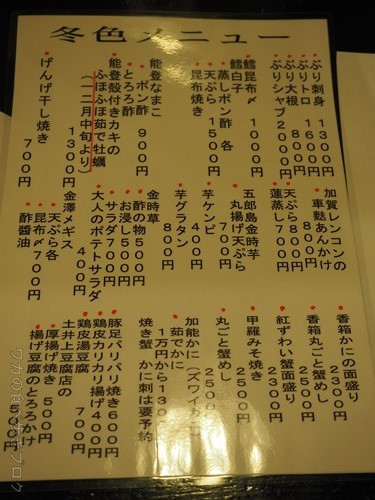 冬色メニュー
ぶり刺身 1300円
ぶりトロ 1600円
ぶり大根 800円
ぶりシャブ 2000円
鱈昆布〆 1000円
鱈白子
蒸しポン酢 各
天ぷら 1500円
昆布焼き
能登なまこ
ポン酢 900円
とろろ酢
能登殻付きカキの
ふほふほ茹で牡蠣
(一二月中旬より)
1300円
げんげ干し焼き
700円
加賀レンコンの
車麩あんかけ
800円
天ぷら 800円
蓮蒸し 700円
五郎島金時芋
丸揚げ天ぷら
700円
芋ケンピ
400円
芋グラタン
800円
金時草
酢の物 500円
お浸し 500円
サラダ 700円
大人のポテトサラダ
400円
金澤メギス
天ぷら 各
昆布〆 700円
酢醤油
香箱かにの面盛り
2300円
香箱丸ごと蟹めし
2500円
紅ずわい蟹面盛り
2300円
甲羅みそ焼き
2500円
丸ごと蟹めし
2500円
加能かに(ズワイガニ)
茹でかに
1万円から1
焼き蟹 かに刺は要予約
豚足パリパリ焼き 600円
鶏皮カリカリ揚げ 400円
鶏皮湯豆腐
700円
土井上豆腐店の
厚揚げ焼き 500円
揚げ豆腐のとろろかけ
500円